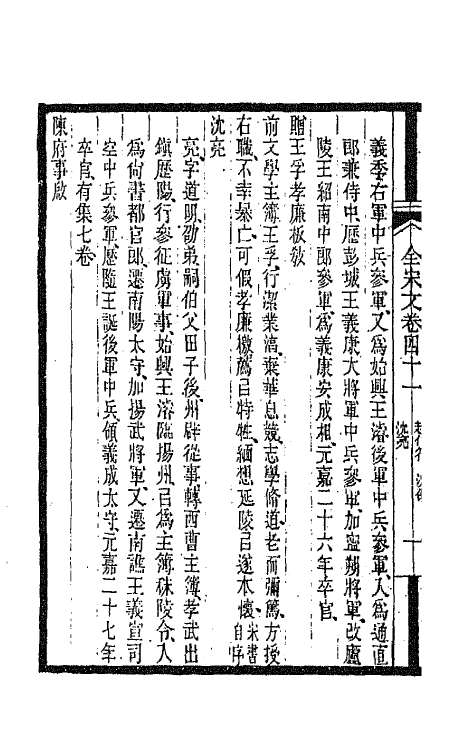 全宋文卷四十一
沈亮
義季右軍中兵參軍又爲始興王濬後軍中兵參軍入爲通直
郎兼侍中歷彭城王義康大將軍中兵參軍加寧朔將軍改廬
陵王紹南中郎參軍爲義康安成相元嘉二十六年卒官
贈王孚孝廉板敎
前文學主簿王孚行潔業淸棄華息競志學脩道老而彌篤方授
右職不幸暴亡可假孝廉檄薦㠯特牲緬想延陵㠯遂本懷宋書自序
沈亮
亮字道明劭弟嗣伯父田子後州辟從事轉西曹主簿孝武出
鎭歷陽行參征虜軍事始興王濬臨揚州㠯爲主簿秣陵令入
爲尙書都官郎遷南陽太守加揚武將軍又遷南譙王義宣司
空中兵參軍歷隨王誕後軍中兵領義成太守元嘉二十七年
卒官有集七卷
陳府事啟